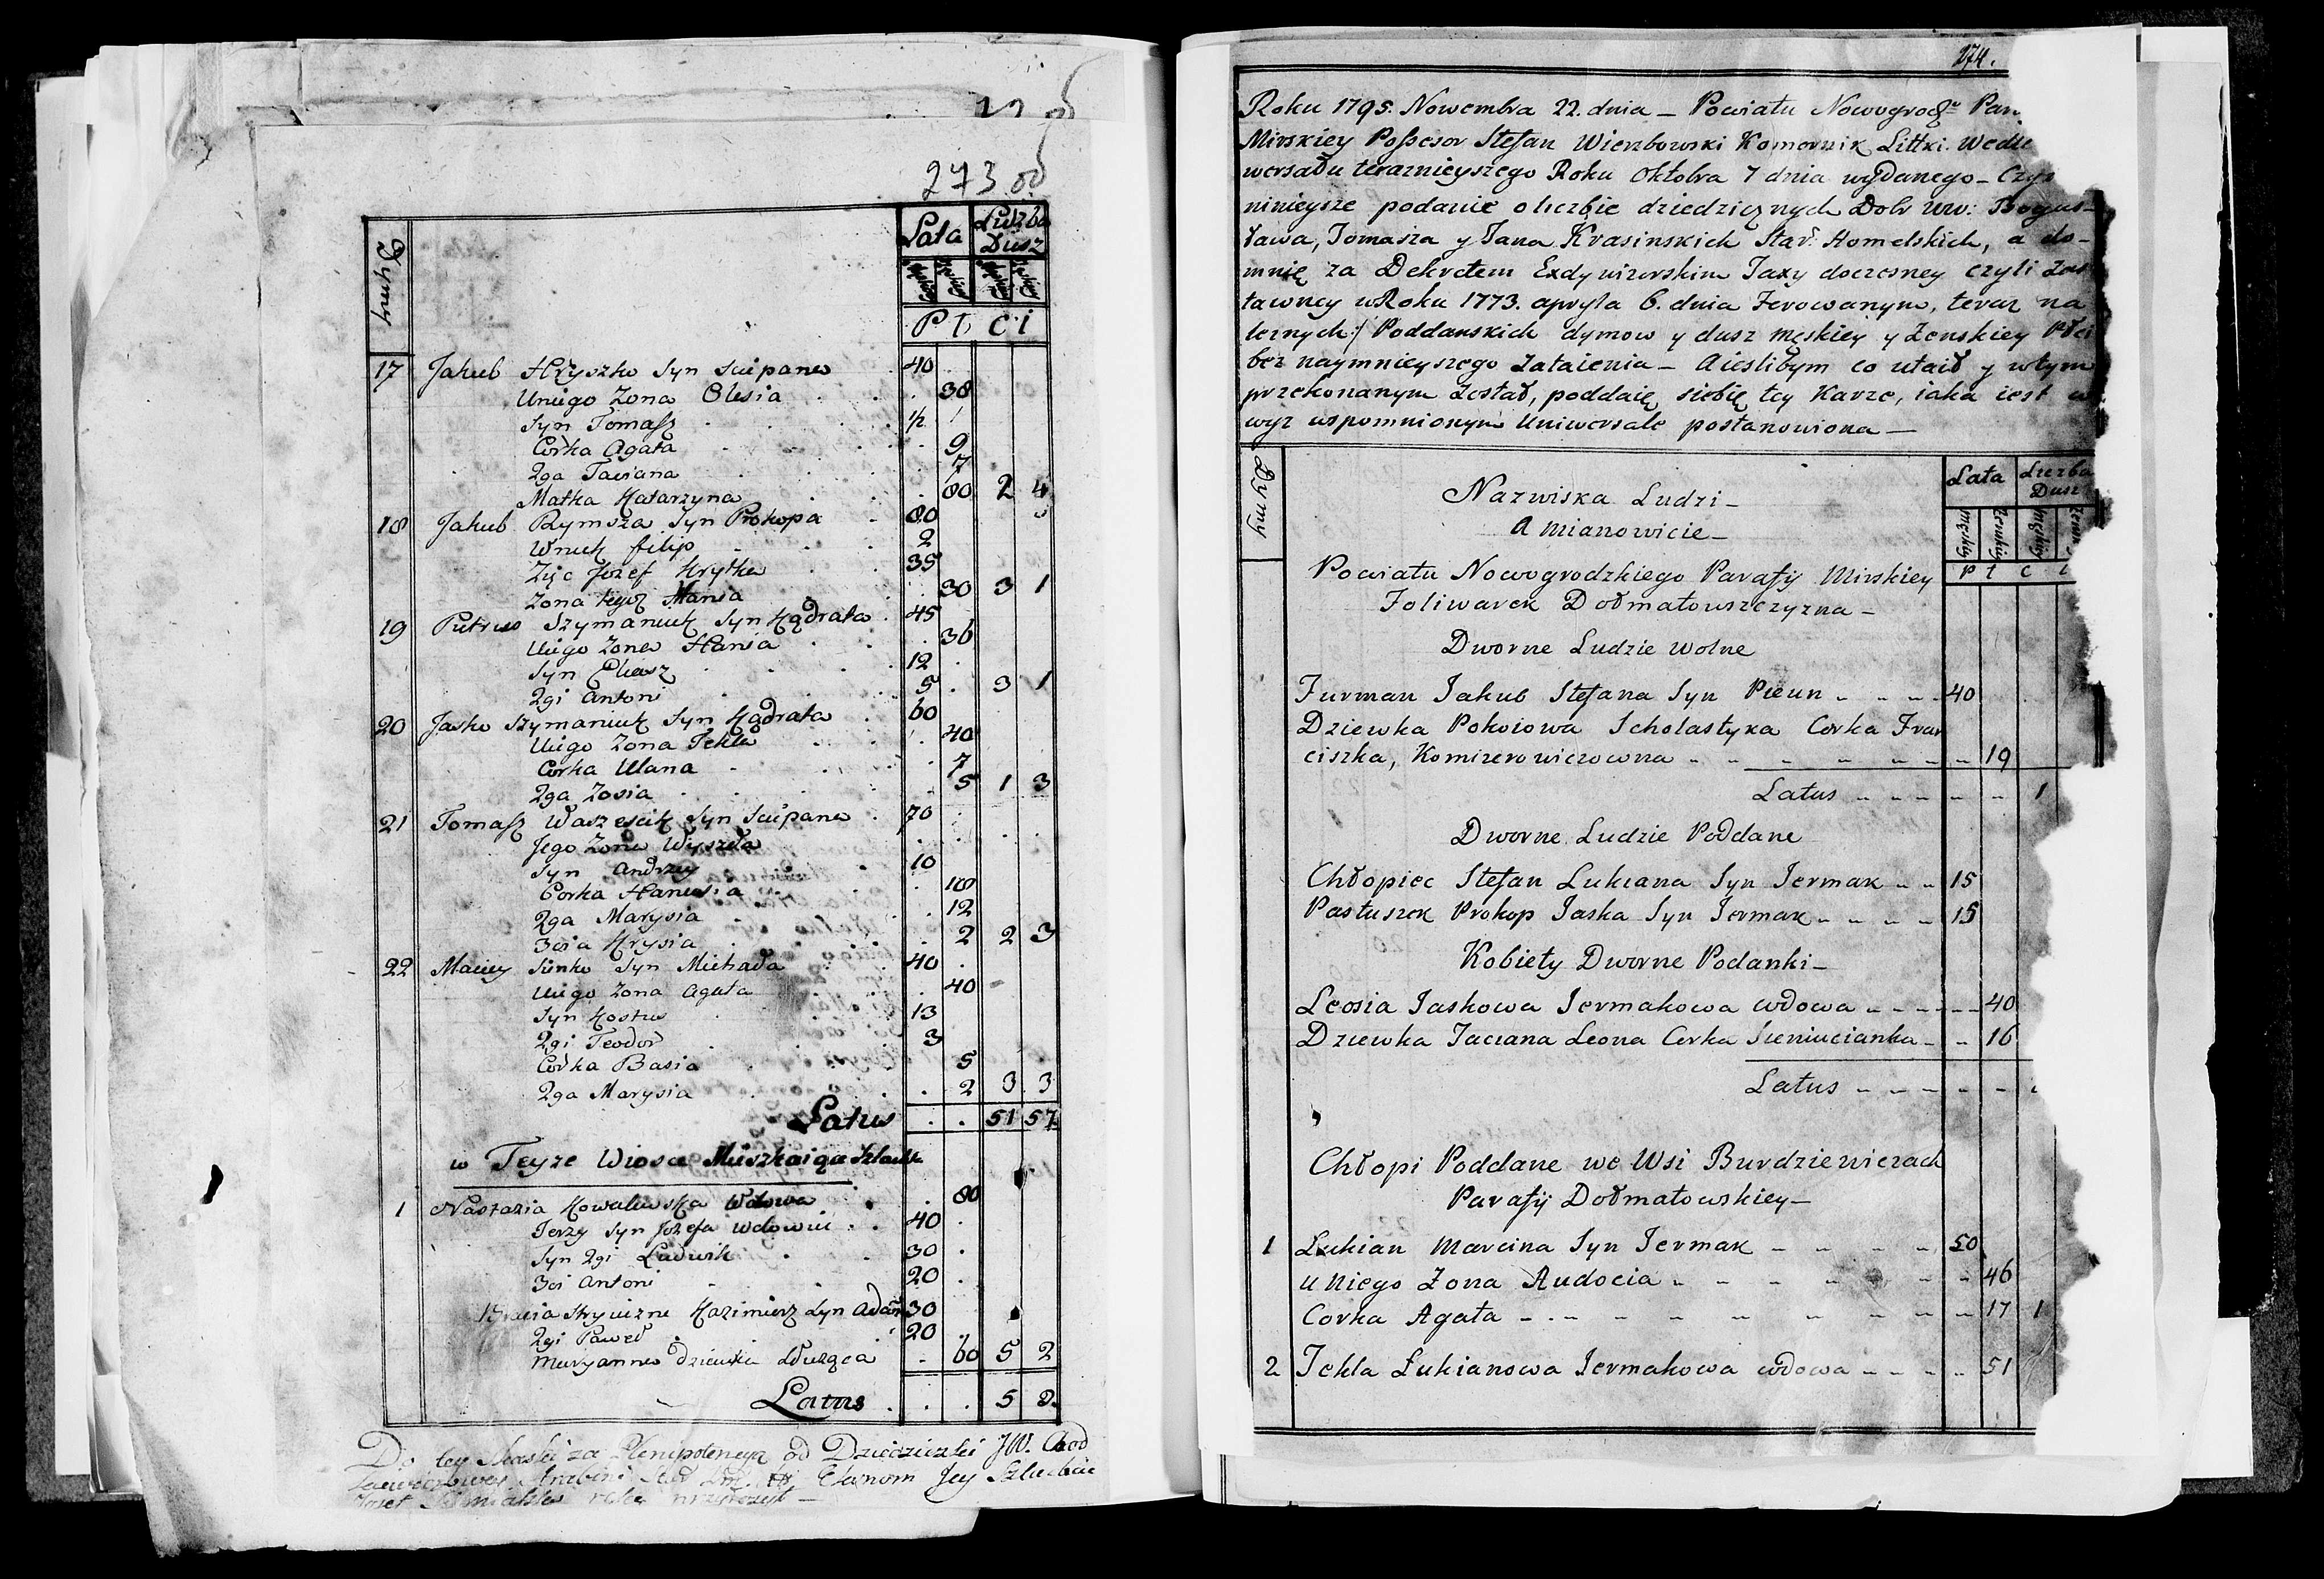 273 od
Dymy
Lata Liczba
Dusz
Męskiey Żeńskiey Męskiey Żeńskiey
P ł c i
17 Jakub Hryszko Syn Sciepana 40
Uniego Zona Olesia 38
Syn Tomasz 1/2
Corka Agata 9
2ga Taciana 7
Matka Katarzyna 80 2 4
18 Jakub Rymsza Syn Prokopa 80
Wnuk filip 2
Zięc Jozef Hrytka 35
Zona tegoż Hania 30 3 1
19 Pietrus Szymaniuk Syn Kądrata 45
Uiego Zona Hania 36
Syn Eliasz 12
2gi Antoni 5 3 1
20 Jasko Szymaniuk Syn Kądrata 60
Uiego Zona Tekla 40
Corka Ulana 7
2ga Zosia 5 1 3
21 Tomasz Waszescik Syn Sciepana 70
Jego Zona Wyszła
Syn Andrzey 10
Corka Hanusia 18
2ga Marysia 12
3cia Krysia 2 2 3
22 Maciey Sienko Syn Michała 40
Uiego Zona Agata 40
Syn Kostus 13
2gi Teodor 3
Corka Basia 5
2ga Marysia 2 3 3
Latus 51 57
w Teyze Wiosce Mieszkaiąca Szlachta
1 Nastazia Kowalewska Wdowa 80
Jerzy Syn Jozefa wdowiec 40
Syn 2gi Ludwik 30
3ci Antoni 20
Bracia Stryieczne Kazimierz Syn Adam 30
2gi Paweł 20
Maryanna dziewka służąca 60 5 2
Latus 5 2
Do tey Skaski za Plenipotencyą od Dziedziczki JW. Chod
Ekonom Jey Szlachcic
Jozef rękę
274.
Roku 1795. Nowembra 22. dnia – Powiatu Nowogrodze Par
Mirskiey Possesor Stefan Wierzbowski Komornik Littki. Wedle
wersału teraznieyszego Roku Oktobra 7 dnia wydanego – Czy
ninieysze podanie o liczbie dziedzicznych Dobr WW: Bogus-
ława, Tomasza y Jana Krasinskich Star: Homelskich, a do-
mnię za Dekretem Exdywizorskim Taxy doczesney czyli Zas
tawney w Roku 1773. apryla 6. dnia Ferowanym, teraz na
leznych:/ Poddanskich dymow y dusz męskiey y Zenskiey Płci
bez naymnieyszego Zataienia – A iesliбym co utaił y w tym
przekonanym Został, poddaię siebię tey Karze, iaka iest w
wyz wspomnionym Uniwersale postanowiona –
Dymy
Nazwiska Ludzi –
A mianowicie –
Lata Liczba
Dusz
Męskiey Zenskiey Męskiey Zensk
P ł c i
Powiatu Nowogrodzkiego Parafij Mirskiey
Foliwarek Dołmatowszczyzna –
Dworne Ludzie Wolne
Furman Jakub Stefana Syn Pieun 40
Dziewka Pokoiowa Scholastyka Corka Fran
ciszka, Komizerowiczowna 19
Latus 1
Dworne Ludzie Poddane
Chłopiec Stefan Lukiana Syn Jermak 15
Pastuszek Prokop Jaska Syn Jermak 15
Kobiety Dworne Podanki –
Leosia Jaskowa Jermakowa wdowa 40
Dziewka Taciana Leona Corka Sieniucianka 16
Latus
Chłopi Poddane we Wsi Burdziewiczach
Parafij Dołmatowskiey –
1 Lukian Marcina Syn Jermak 50
U niego Zona Audocia 46
Corka Agata 17 1
2 Tekla Łukianowa Jermakowa wdowa 51